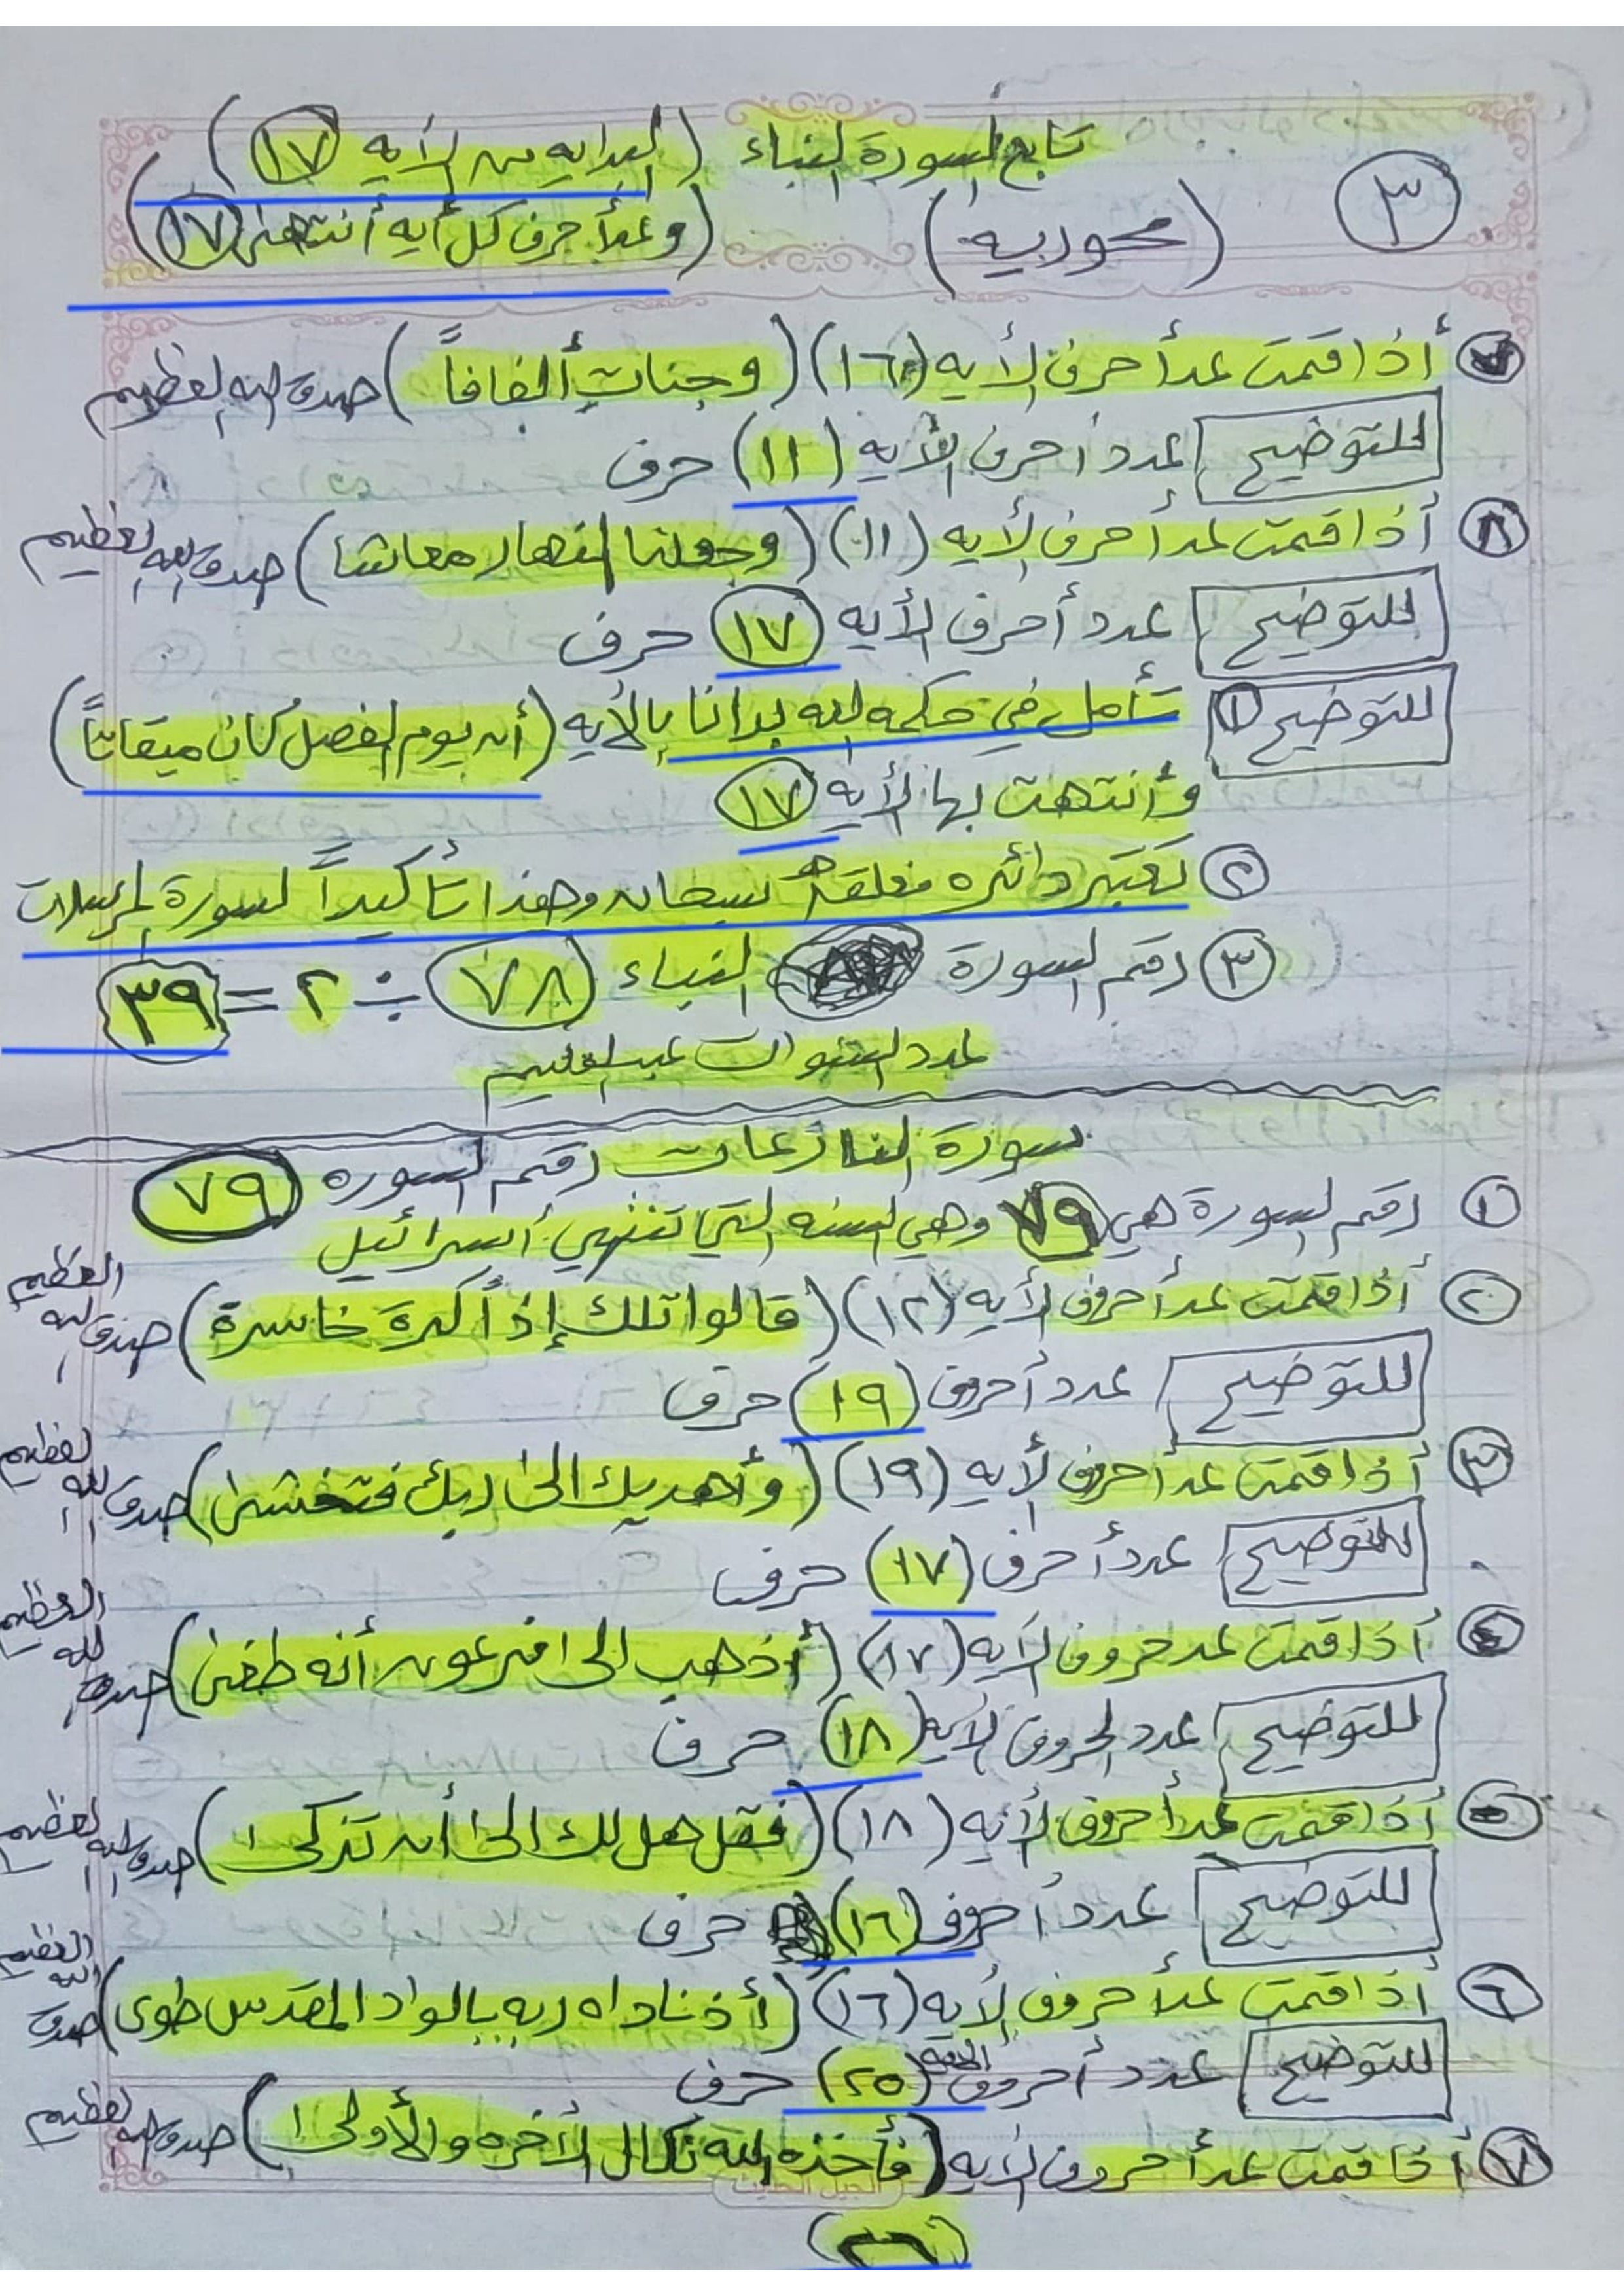 ٣
تابع لسورة النباء (البدايه من الأيه ١٧)
(محوريه) (وعدأحرف كل أيه أنتهىٰ ١٧)
أذا قمت عد أحرف الأيه (١٦) (وجناتٍ ألفافاً) صدق الله العظيم
للتوضيح عدد أحرف الأيه (١١) حرف
٨ أذا قمت عد أحرف لأيه (١١) (وجعلنا النهار معاشا) صدق الله العظيم
للتوضيح عدد أحرف لأيه ١٧ حرف
للتوضيح ١ تأمل في حكمه الله بدأنا بالأيه (أن يوم الفصل كان ميقاتاً)
وأنتهت بها لأيه ١٧
٢ تعتبر دائره مغلقه سبحان وهذا تأكيداً لسورة المرسلات
٣ رقم السورة النباء ٧٨ ÷ ٢ = ٣٩
عدد السنوات
سورة النازعات رقم السوره ٧٩
١ رقم السورة هي ٧٩ وهي السنه التي تنتهي أسرائيل
٢ أذا قمت عد أحروف لأيه (١٢) (قالوا تلك إذاً كرة خاسرة) صدق الله العظيم
للتوضيح عدد أحروف (١٩) حرف
٣ أذا قمت عد أحروف لأيه (١٩) (وأهديك الىٰ ربك فتخشىٰ) صدق الله العظيم
للتوضيح عدد أحرف (١٧) حرف
٤ أذا قمت عد حروف لأيه (١٧) (أذهب الى فرعون أنه طغىٰ) صدق الله العظيم
للتوضيح عدد الحروف لأيه (١٨) حرف
٥ أذا قمت عد أحروف لأيه (١٨) (فقل هل لك الىٰ أن تزكىٰ) صدق الله العظيم
للتوضيح عدد أحروف (١٦) حرف
٦ أذا قمت عد أحروف لأيه (١٦) (أذ ناداه ربه بالواد المقدس طوى) صدق الله العظيم
للتوضيح عدد أحروف الأيه (٢٥) حرف
٧ أذا قمت عد أحروف الأيه (فأخذه الله نكال الأخره والأولىٰ) صدق الله العظيم
الجيل الحديث
(٢٦)